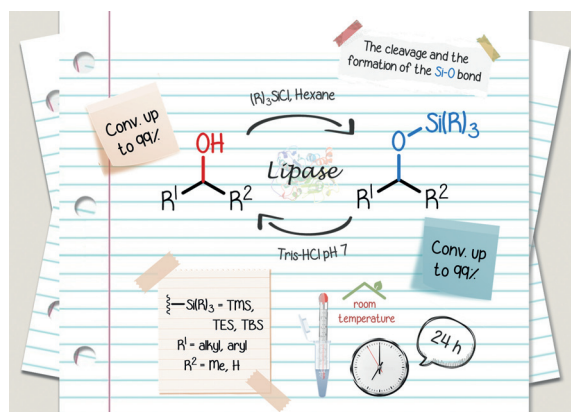 The cleavage and the
formation of the Si-O bond
Conv. up
to 99%
(R)₃SiCl, Hexane
OH
R¹
R²
Lipase
O
Si(R)₃
R¹
R²
Tris-HCl pH 7
Conv. up
to 99%
Si(R)₃ = TMS,
TES, TBS
R¹ = alkyl, aryl
R² = Me, H
room
temperature
24 h